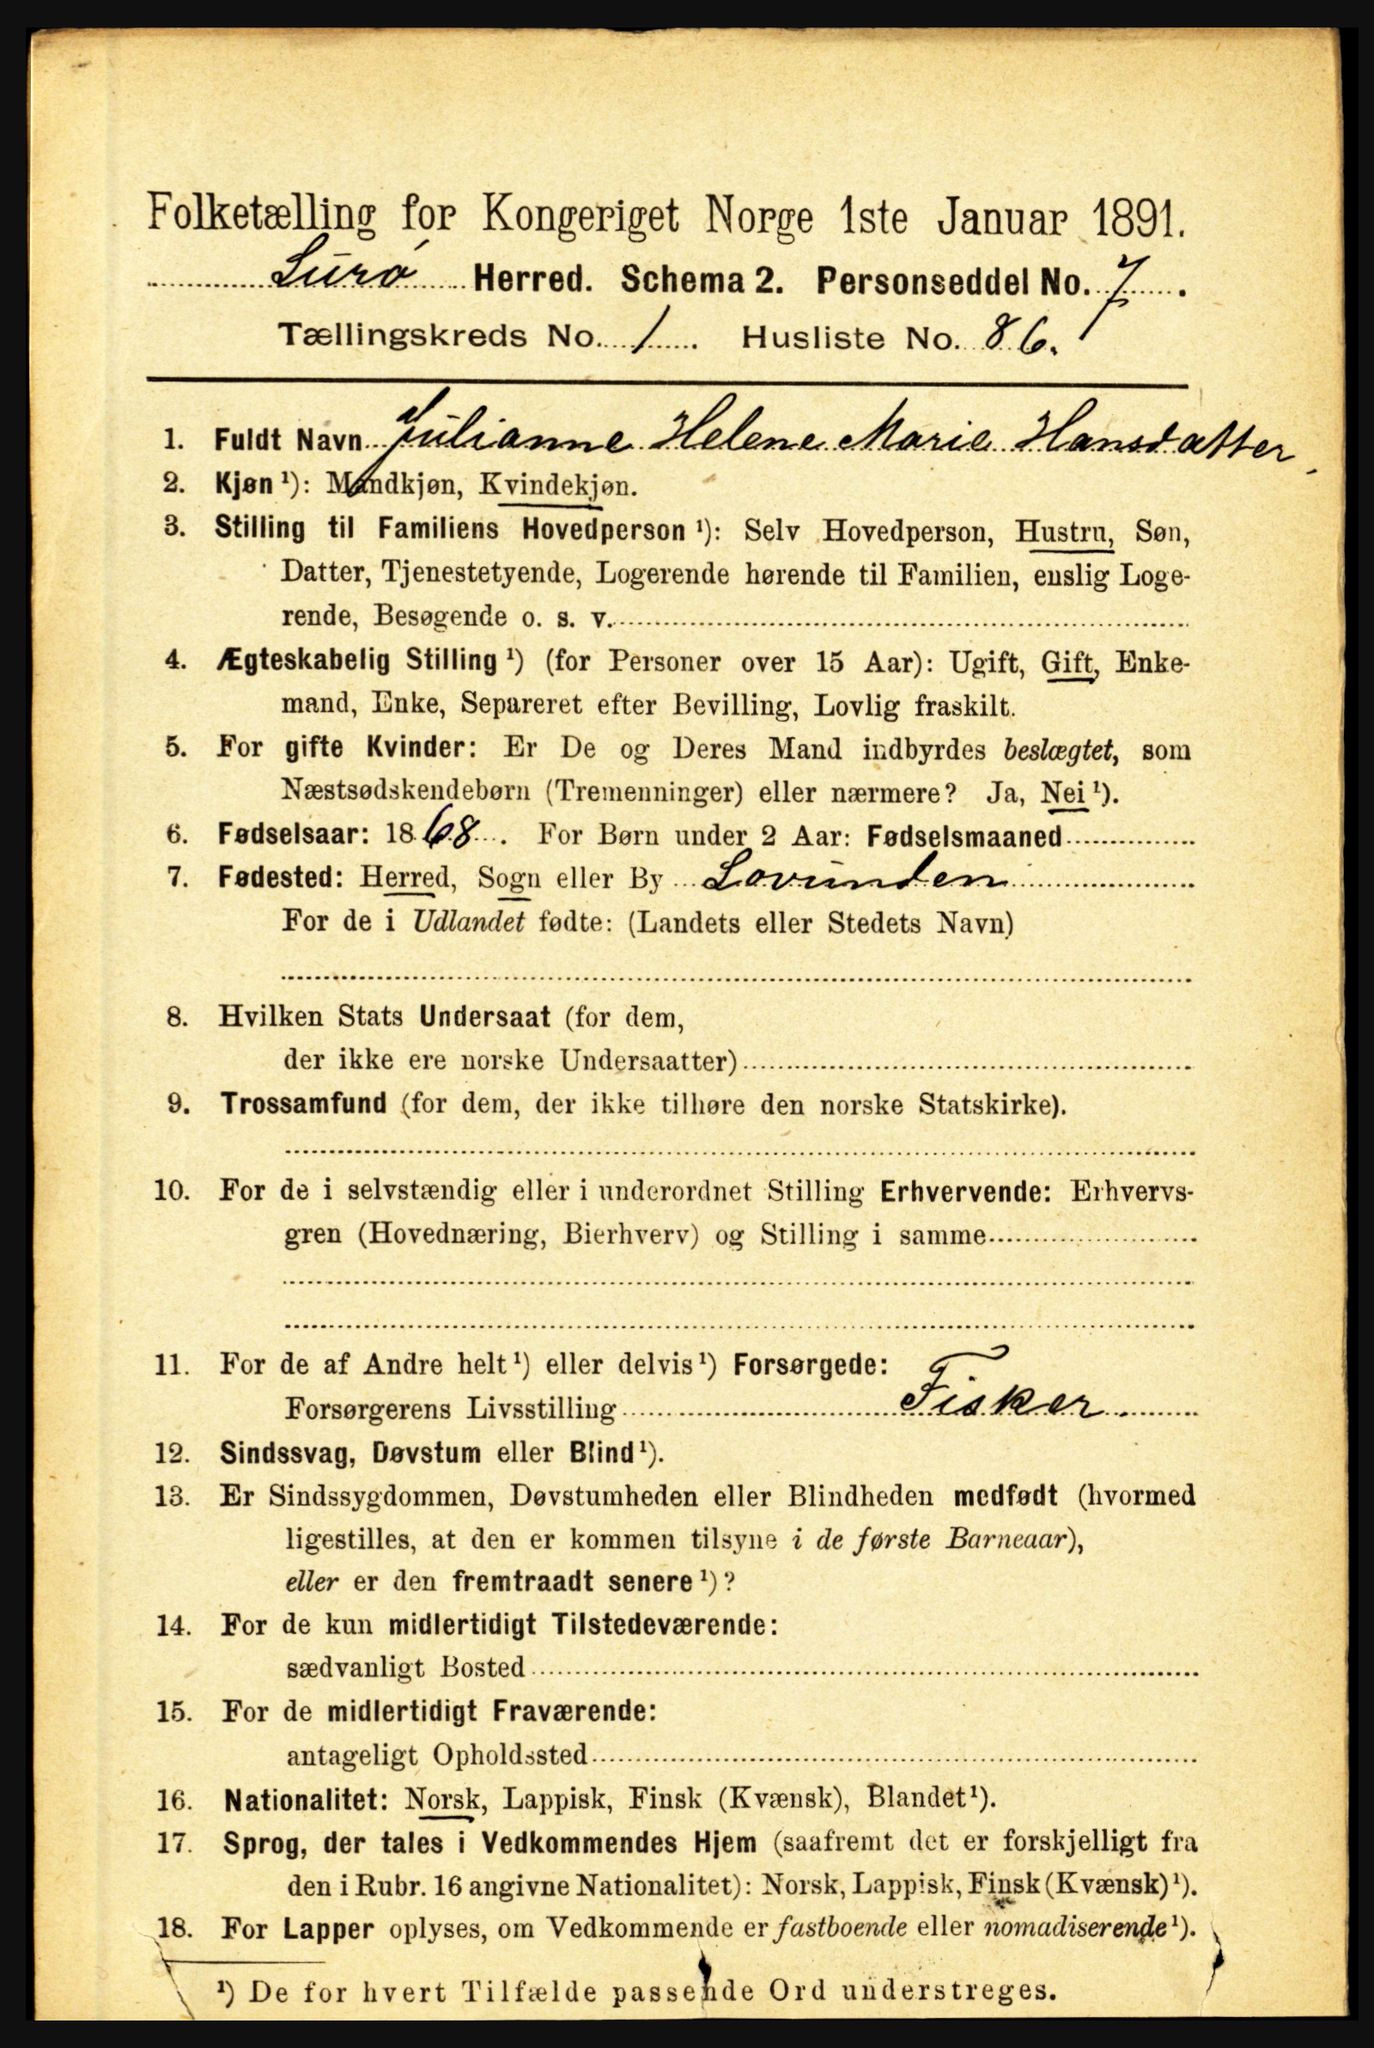 Folketælling for Kongeriget Norge 1ste Januar 1891.
Lurø Herred. Schema 2. Personseddel No. 7.
Tællingskreds No. 1. Husliste No. 86.
1. Fuldt Navn Julianne Helene Marie Hansdatter
2. Kjøn ¹): Mandkjøn, Kvindekjøn.
3. Stilling til Familiens Hovedperson ¹): Selv Hovedperson, Hustru, Søn,
Datter, Tjenestetyende, Logerende hørende til Familien, enslig Loge-
rende, Besøgende o. s. v.
4. Ægteskabelig Stilling ¹) (for Personer over 15 Aar): Ugift, Gift, Enke-
mand, Enke, Separeret efter Bevilling, Lovlig fraskilt.
5. For gifte Kvinder: Er De og Deres Mand indbyrdes beslægtet, som
Næstsødskendebørn (Tremenninger) eller nærmere? Ja, Nei ¹).
6. Fødselsaar: 1868. For Børn under 2 Aar: Fødselsmaaned
7. Fødested: Herred, Sogn eller By Lovunden
For de i Udlandet fødte: (Landets eller Stedets Navn)
8. Hvilken Stats Undersaat (for dem,
der ikke ere norske Undersaatter)
9. Trossamfund (for dem, der ikke tilhøre den norske Statskirke).
10. For de i selvstændig eller i underordnet Stilling Erhvervende: Erhvervs-
gren (Hovednæring, Bierhverv) og Stilling i samme
11. For de af Andre helt ¹) eller delvis ¹) Forsørgede:
Forsørgerens Livsstilling Fisker.
12. Sindssvag, Døvstum eller Blind ¹).
13. Er Sindssygdommen, Døvstumheden eller Blindheden medfødt (hvormed
ligestilles, at den er kommen tilsyne i de første Barneaar),
eller er den fremtraadt senere ¹)?
14. For de kun midlertidigt Tilstedeværende:
sædvanligt Bosted
15. For de midlertidigt Fraværende:
antageligt Opholdssted
16. Nationalitet: Norsk, Lappisk, Finsk (Kvænsk), Blandet ¹).
17. Sprog, der tales i Vedkommendes Hjem (saafremt det er forskjelligt fra
den i Rubr. 16 angivne Nationalitet): Norsk, Lappisk, Finsk (Kvænsk) ¹).
18. For Lapper oplyses, om Vedkommende er fastboende eller nomadiserende ¹).
¹) De for hvert Tilfælde passende Ord understreges.